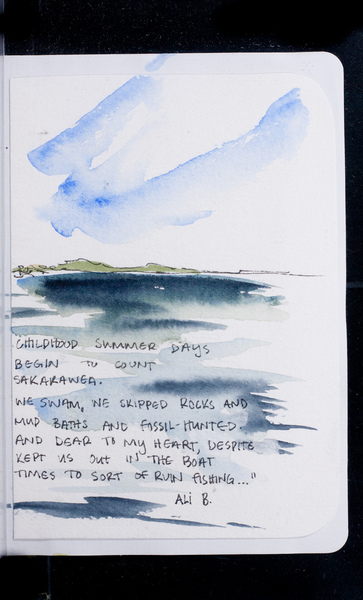 CHILDHOOD SUMMER DAYS
BEGIN TO COUNT
SAKARAWEA.
WE SWAM, WE SKIPPED ROCKS AND
MUD BATHS AND FOSSIL-HUNTED.
AND DEAR TO MY HEART, DESPITE
KEPT US OUT IN THE BOAT
TIMES TO SORT OF RUIN FISHING..."
ALI B.